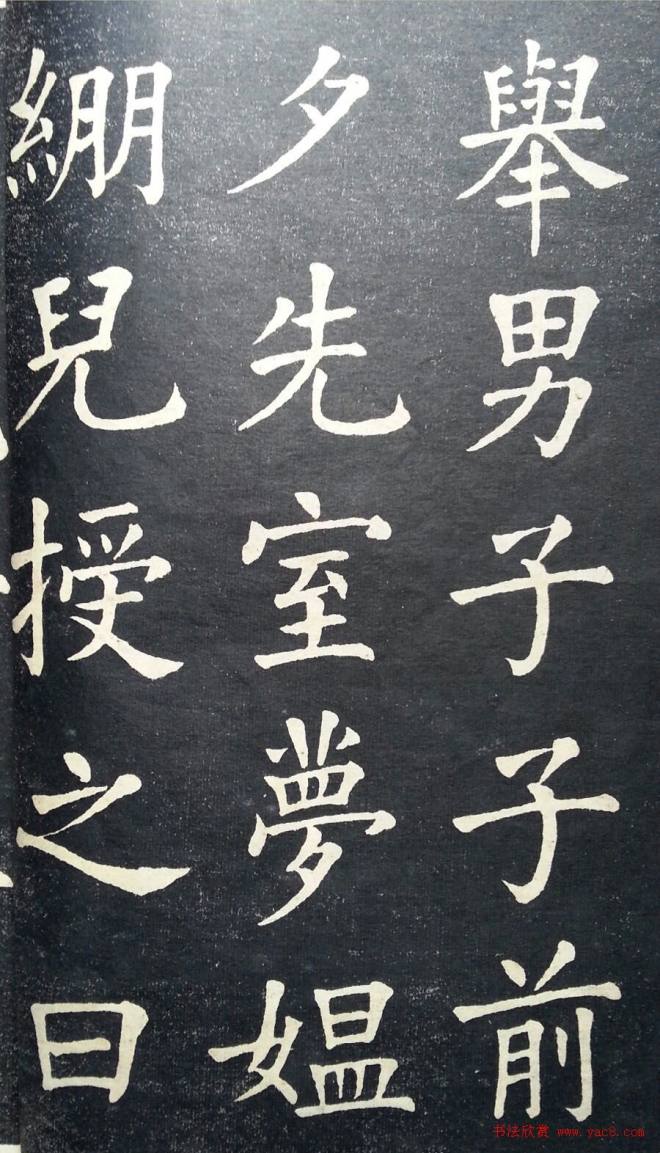 舉男子子前
夕先室夢媼
繃兒授之曰
书法欣赏 www.yac8.com